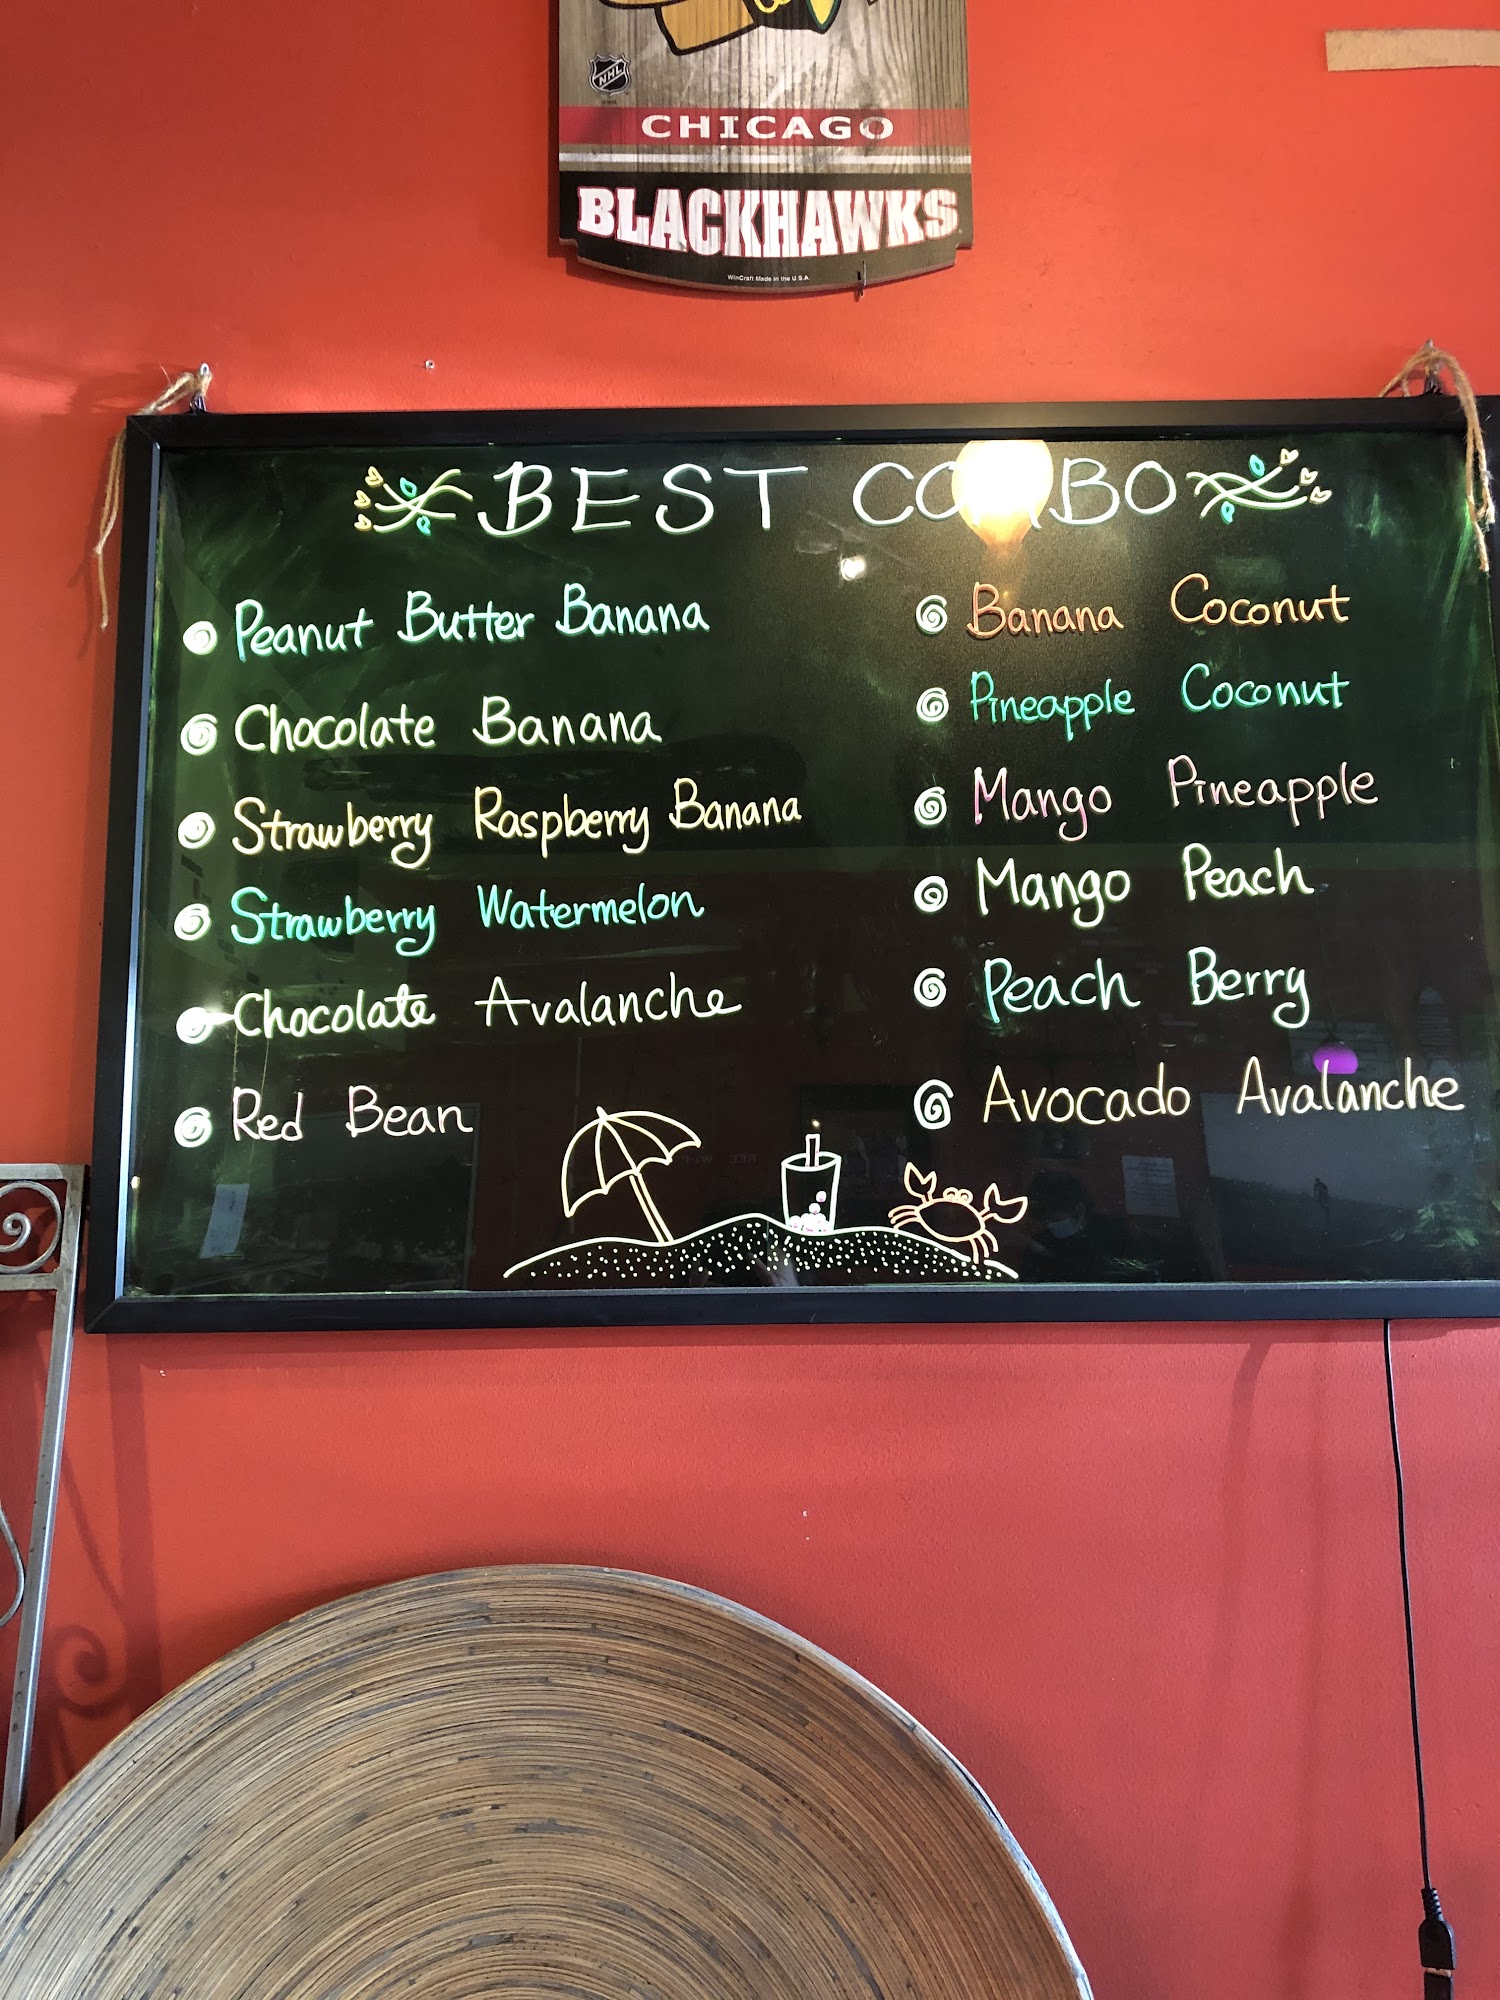 NHL
CHICAGO
BLACKHAWKS
WinCraft Made in the U.S.A.
BEST COMBO
Peanut Butter Banana
Chocolate Banana
Strawberry Raspberry Banana
Strawberry Watermelon
Chocolate Avalanche
Red Bean
Banana Coconut
Pineapple Coconut
Mango Pineapple
Mango Peach
Peach Berry
Avocado Avalanche